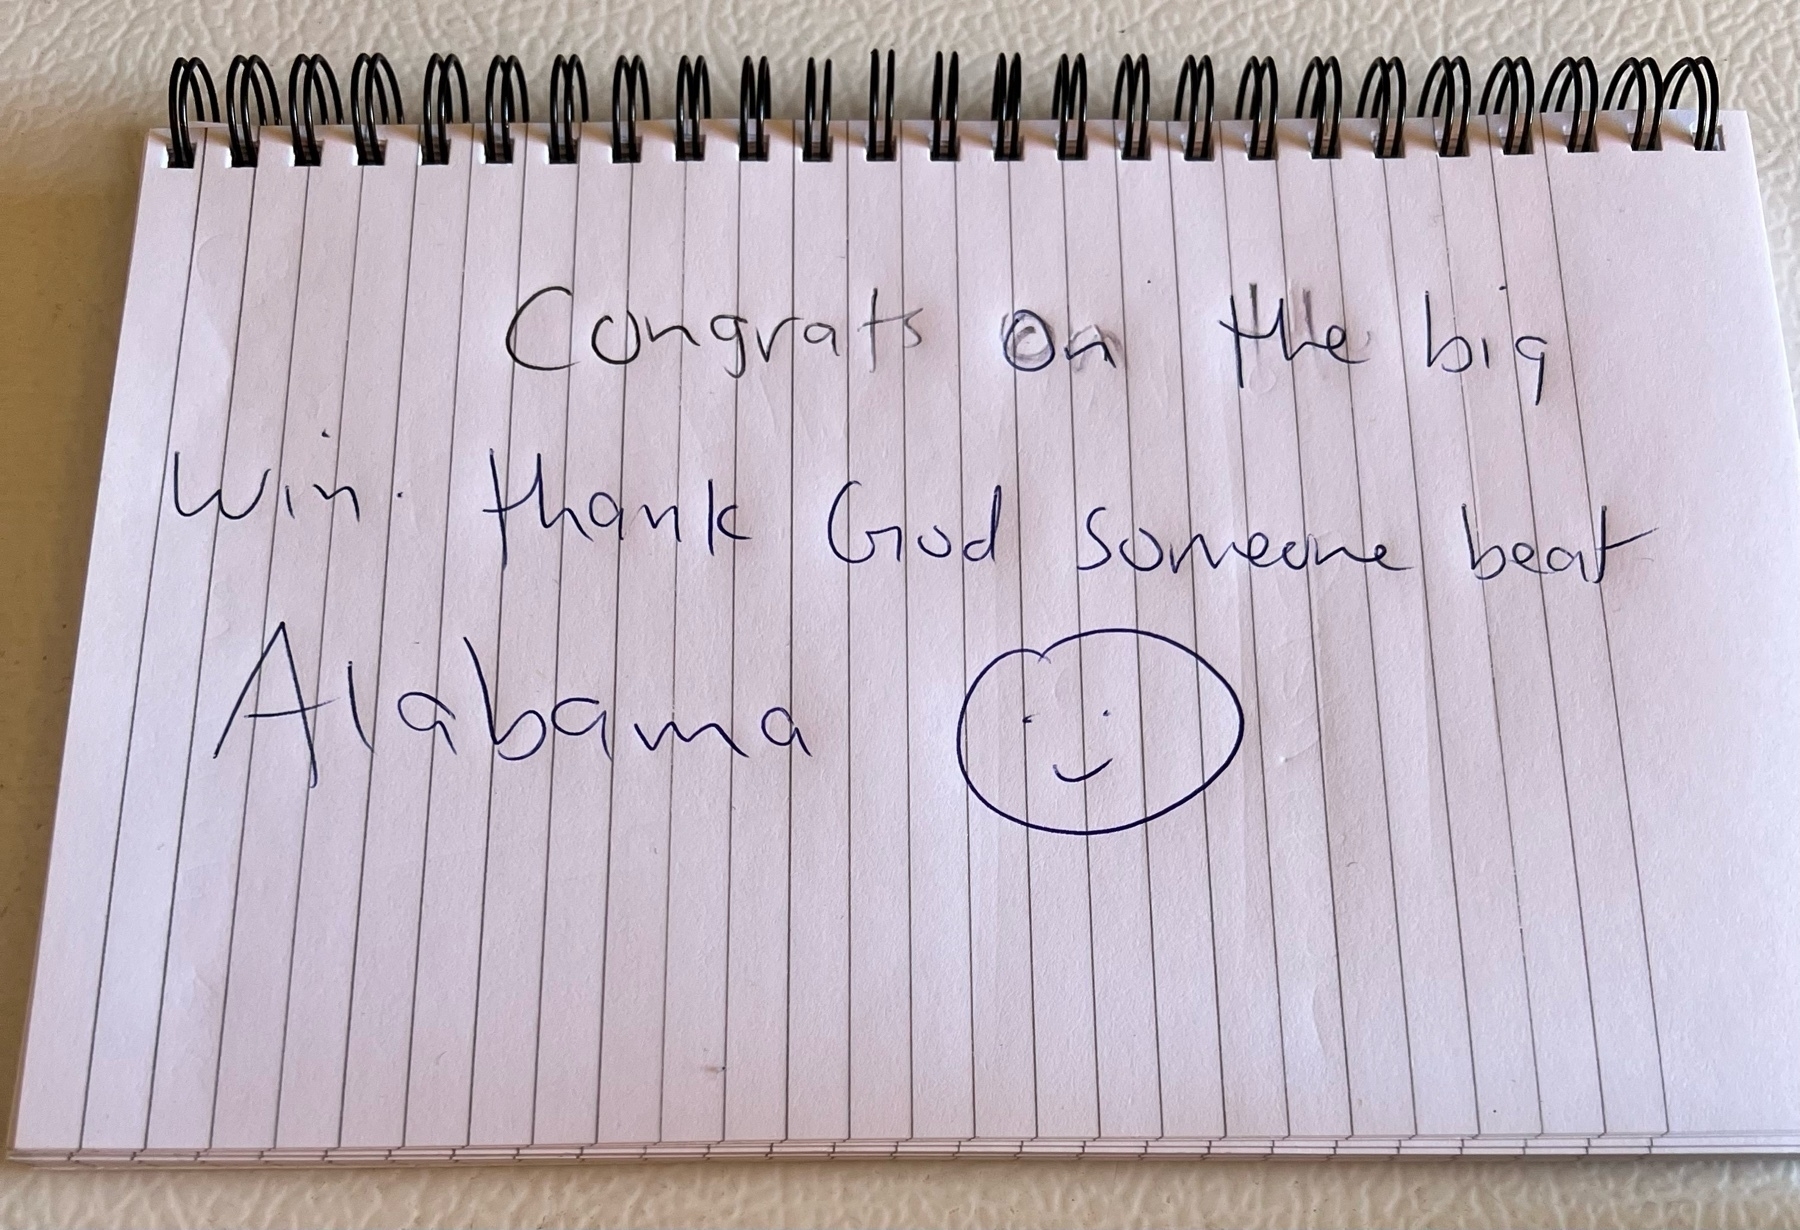 Congrats on the big
Win. thank God someone beat
Alabama